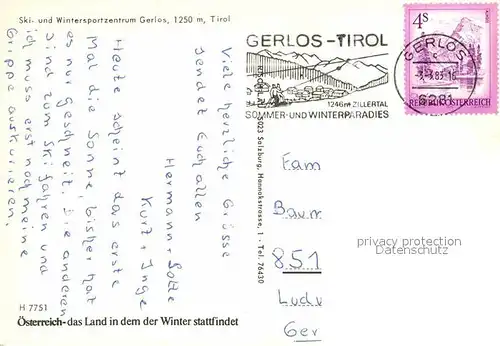 Ski- und Wintersportzentrum Gerlos, 1250 m, Tirol
Heute scheint das erste
Mal die Sonne, bisher hat
es nur geschneit. Die anderen
sind zum Skifahren und
ich muss erst noch meine
Grippe auskurieren.
Viele herzliche Grüsse
sendet Euch allen
Hermann, Lotte
Kurt, Inge
H 7751
Österreich - das Land in dem der Winter stattfindet
5023 Salzburg, Hannakstrasse, 1 - Tel. 76430
GERLOS-TIROL
1246 m ZILLERTAL
SOMMER- UND WINTERPARADIES
4S
REPUBLIK ÖSTERREICH
GERLOS
Fam
Baum
851
Ludw
Ger
privacy protection
Datenschutz